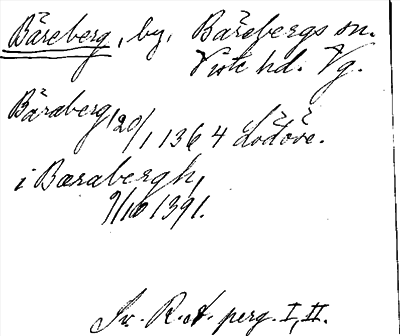 Bäreberg, by, Bärebergs sn.
Viste hd. Vg.
Bäraberg 20/1 1364 Lödöse.
i Bærabergh,
9/10 1391.
Sv. R.A. perg. I, II.